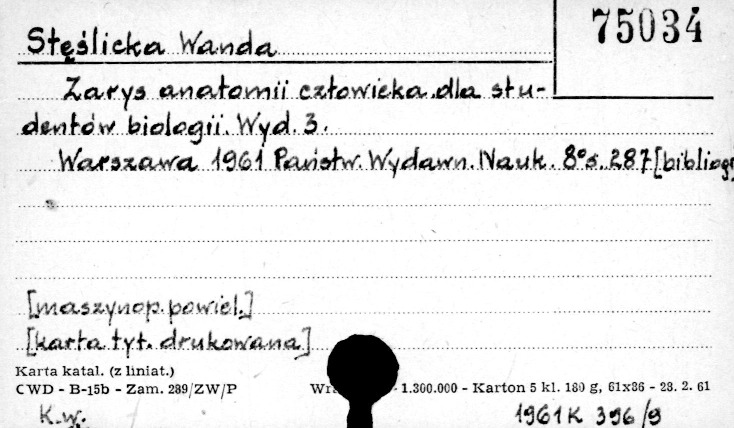 75034
Stęślicka Wanda
Zarys anatomii człowieka dla stu-
dentów biologii. Wyd. 3.
Warszawa 1961 Państw. Wydawn. Nauk. 8° s. 287 [bibliogr
[maszynop. powiel.]
[karta tyt. drukowana]
Karta katal. (z liniat.)
CWD - B-15b - Zam. 289/ZW/P 1.300.000 - Karton 5 kl. 180 g, 61x86 - 28. 2. 61
K.w. 1961 K 396/9